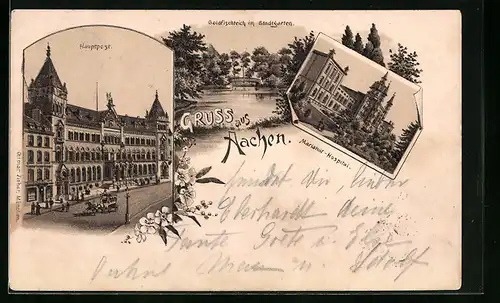 Goldfischteich im Stadtgarten.
Hauptpost.
GRUSS aus
Aachen.
Mariahilf-Hospital.
Ottmar Zieher, München.
sendet Dir, lieber
Eberhardt deine
Tante Grete u. Else